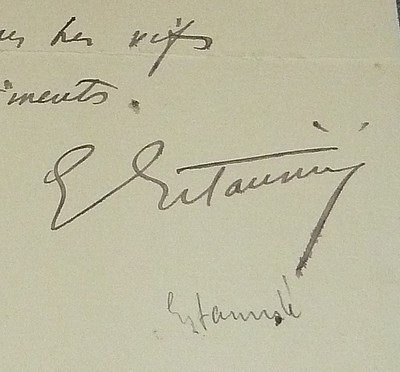 très vifs
iments.
E Estaunié
Estaunié